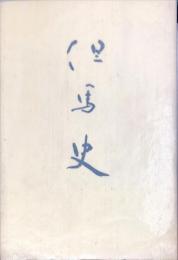 但馬史